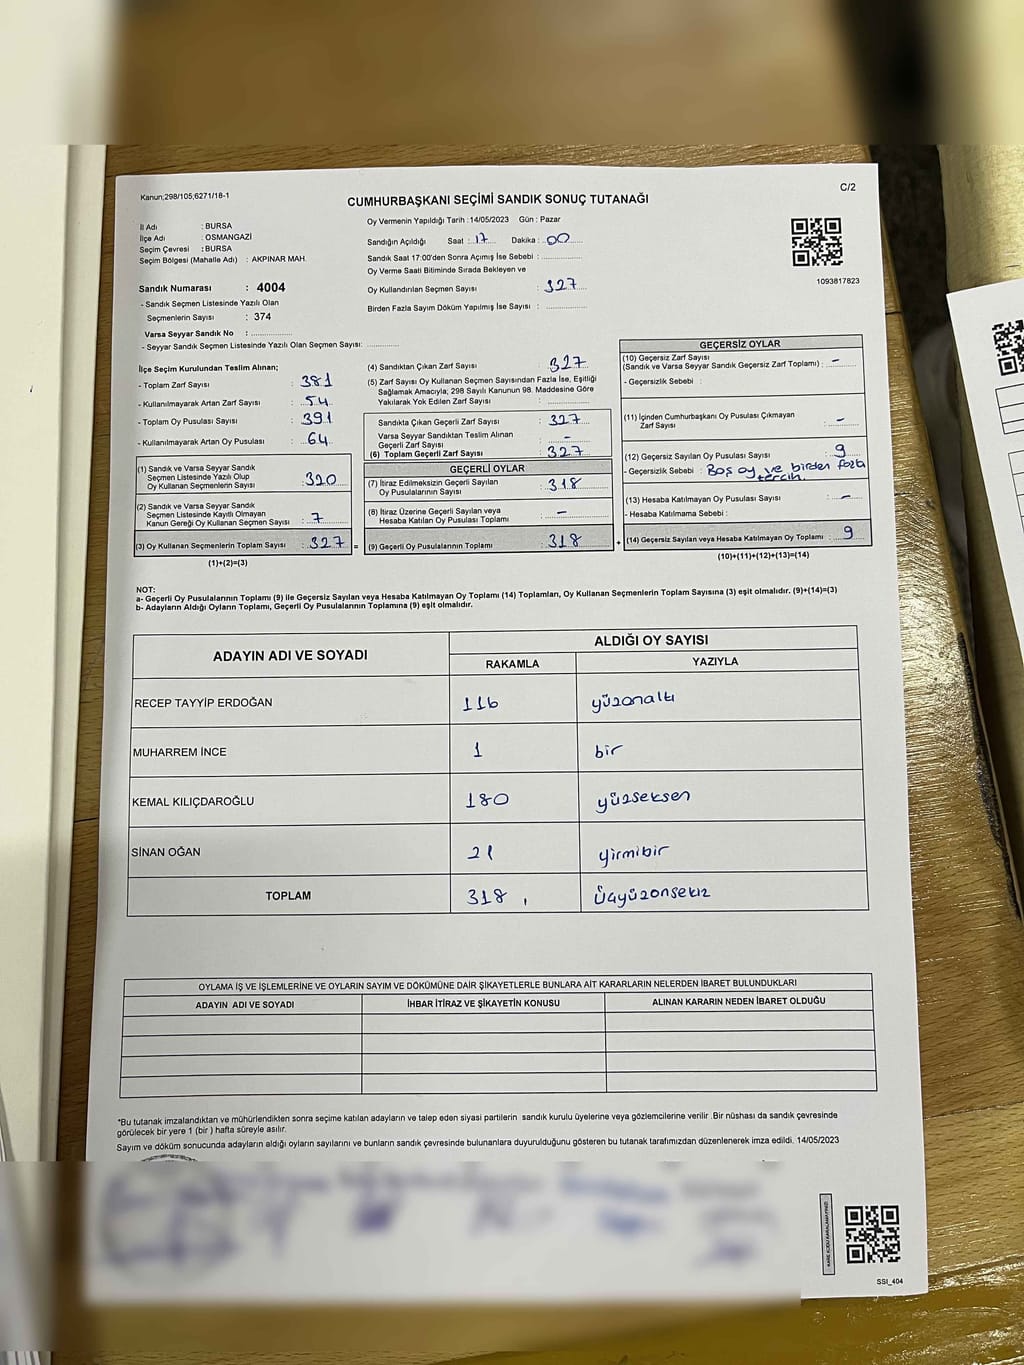 Kanun;298/105;6271/18-1
C/2
CUMHURBAŞKANI SEÇİMİ SANDIK SONUÇ TUTANAĞI
İl Adı : BURSA
İlçe Adı : OSMANGAZİ
Seçim Çevresi : BURSA
Seçim Bölgesi (Mahalle Adı) : AKPINAR MAH.
Sandık Numarası : 4004
- Sandık Seçmen Listesinde Yazılı Olan
Seçmenlerin Sayısı : 374
Varsa Seyyar Sandık No :
- Seyyar Sandık Seçmen Listesinde Yazılı Olan Seçmen Sayısı:
Oy Vermenin Yapıldığı Tarih :14/05/2023 Gün : Pazar
Sandığın Açıldığı Saat : 17 Dakika : 00
Sandık Saat 17:00'den Sonra Açımış İse Sebebi :
Oy Verme Saati Bitiminde Sırada Bekleyen ve
Oy Kullandırılan Seçmen Sayısı : 327
Birden Fazla Sayım Döküm Yapılmış İse Sayısı :
1093817823
İlçe Seçim Kurulundan Teslim Alınan;
- Toplam Zarf Sayısı : 381
- Kullanılmayarak Artan Zarf Sayısı : 54
- Toplam Oy Pusulası Sayısı : 391
- Kullanılmayarak Artan Oy Pusulası : 64
(1) Sandık ve Varsa Seyyar Sandık
Seçmen Listesinde Yazılı Olup
Oy Kullanan Seçmenlerin Sayısı : 320
(2) Sandık ve Varsa Seyyar Sandık
Seçmen Listesinde Kayıtlı Olmayan
Kanun Gereği Oy Kullanan Seçmen Sayısı : 7
(3) Oy Kullanan Seçmenlerin Toplam Sayısı : 327 =
(1)+(2)=(3)
(4) Sandıktan Çıkan Zarf Sayısı : 327
(5) Zarf Sayısı Oy Kullanan Seçmen Sayısından Fazla İse, Eşitliği
Sağlamak Amacıyla; 298 Sayılı Kanunun 98. Maddesine Göre
Yakılarak Yok Edilen Zarf Sayısı :
Sandıkta Çıkan Geçerli Zarf Sayısı : 327
Varsa Seyyar Sandıktan Teslim Alınan
Geçerli Zarf Sayısı : -
(6) Toplam Geçerli Zarf Sayısı : 327
GEÇERLİ OYLAR
(7) İtiraz Edilmeksizin Geçerli Sayılan
Oy Pusulalarının Sayısı : 318
(8) İtiraz Üzerine Geçerli Sayılan veya
Hesaba Katılan Oy Pusulası Toplamı : -
(9) Geçerli Oy Pusulalarının Toplamı : 318 +
GEÇERSİZ OYLAR
(10) Geçersiz Zarf Sayısı
(Sandık ve Varsa Seyyar Sandık Geçersiz Zarf Toplamı) : -
- Geçersizlik Sebebi :
(11) İçinden Cumhurbaşkanı Oy Pusulası Çıkmayan
Zarf Sayısı : -
(12) Geçersiz Sayılan Oy Pusulası Sayısı : 9
- Geçersizlik Sebebi : Boş oy ve birden fazla
tercih.
(13) Hesaba Katılmayan Oy Pusulası Sayısı : -
- Hesaba Katılmama Sebebi :
(14) Geçersiz Sayılan veya Hesaba Katılmayan Oy Toplamı : 9
(10)+(11)+(12)+(13)=(14)
NOT:
a- Geçerli Oy Pusulalarının Toplamı (9) ile Geçersiz Sayılan veya Hesaba Katılmayan Oy Toplamı (14) Toplamları, Oy Kullanan Seçmenlerin Toplam Sayısına (3) eşit olmalıdır. (9)+(14)=(3)
b- Adayların Aldığı Oyların Toplamı, Geçerli Oy Pusulalarının Toplamına (9) eşit olmalıdır.
ADAYIN ADI VE SOYADI ALDIĞI OY SAYISI
RAKAMLA YAZIYLA
RECEP TAYYİP ERDOĞAN 116 yüzonaltı
MUHARREM İNCE 1 bir
KEMAL KILIÇDAROĞLU 180 yüzseksen
SİNAN OĞAN 21 yirmibir
TOPLAM 318 üçyüzonsekiz
OYLAMA İŞ VE İŞLEMLERİNE VE OYLARIN SAYIM VE DÖKÜMÜNE DAİR ŞİKAYETLERLE BUNLARA AİT KARARLARIN NELERDEN İBARET BULUNDUKLARI
ADAYIN ADI VE SOYADI İHBAR İTİRAZ VE ŞİKAYETİN KONUSU ALINAN KARARIN NEDEN İBARET OLDUĞU
*Bu tutanak imzalandıktan ve mühürlendikten sonra seçime katılan adayların ve talep eden siyasi partilerin sandık kurulu üyelerine veya gözlemcilerine verilir .Bir nüshası da sandık çevresinde
görülecek bir yere 1 (bir ) hafta süreyle asılır.
Sayım ve döküm sonucunda adayların aldığı oyların sayılarını ve bunların sandık çevresinde bulunanlara duyurulduğunu gösteren bu tutanak tarafımızdan düzenlenerek imza edildi. 14/05/2023
SSI_404